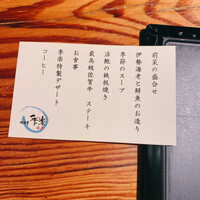 前菜の盛合せ
伊勢海老と鮮魚のお造り
季節のスープ
活鮑の鉄板焼き
最高級佐賀牛 ステーキ
お食事
季楽特製デザート
コーヒー
季楽